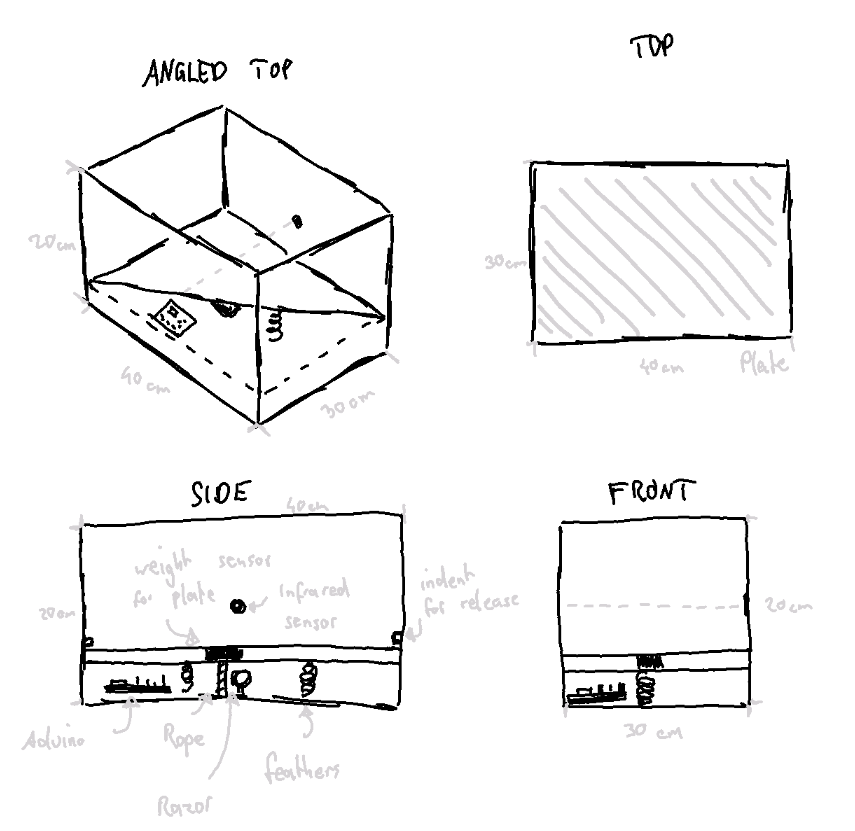 ANGLED TOP
TOP
20cm
40cm
30cm
30cm
40cm
Plate
SIDE
40cm
weight sensor
for plate
infrared
sensor
indent
for release
20cm
Aduino
Rope
Razor
feathers
FRONT
20cm
30 cm